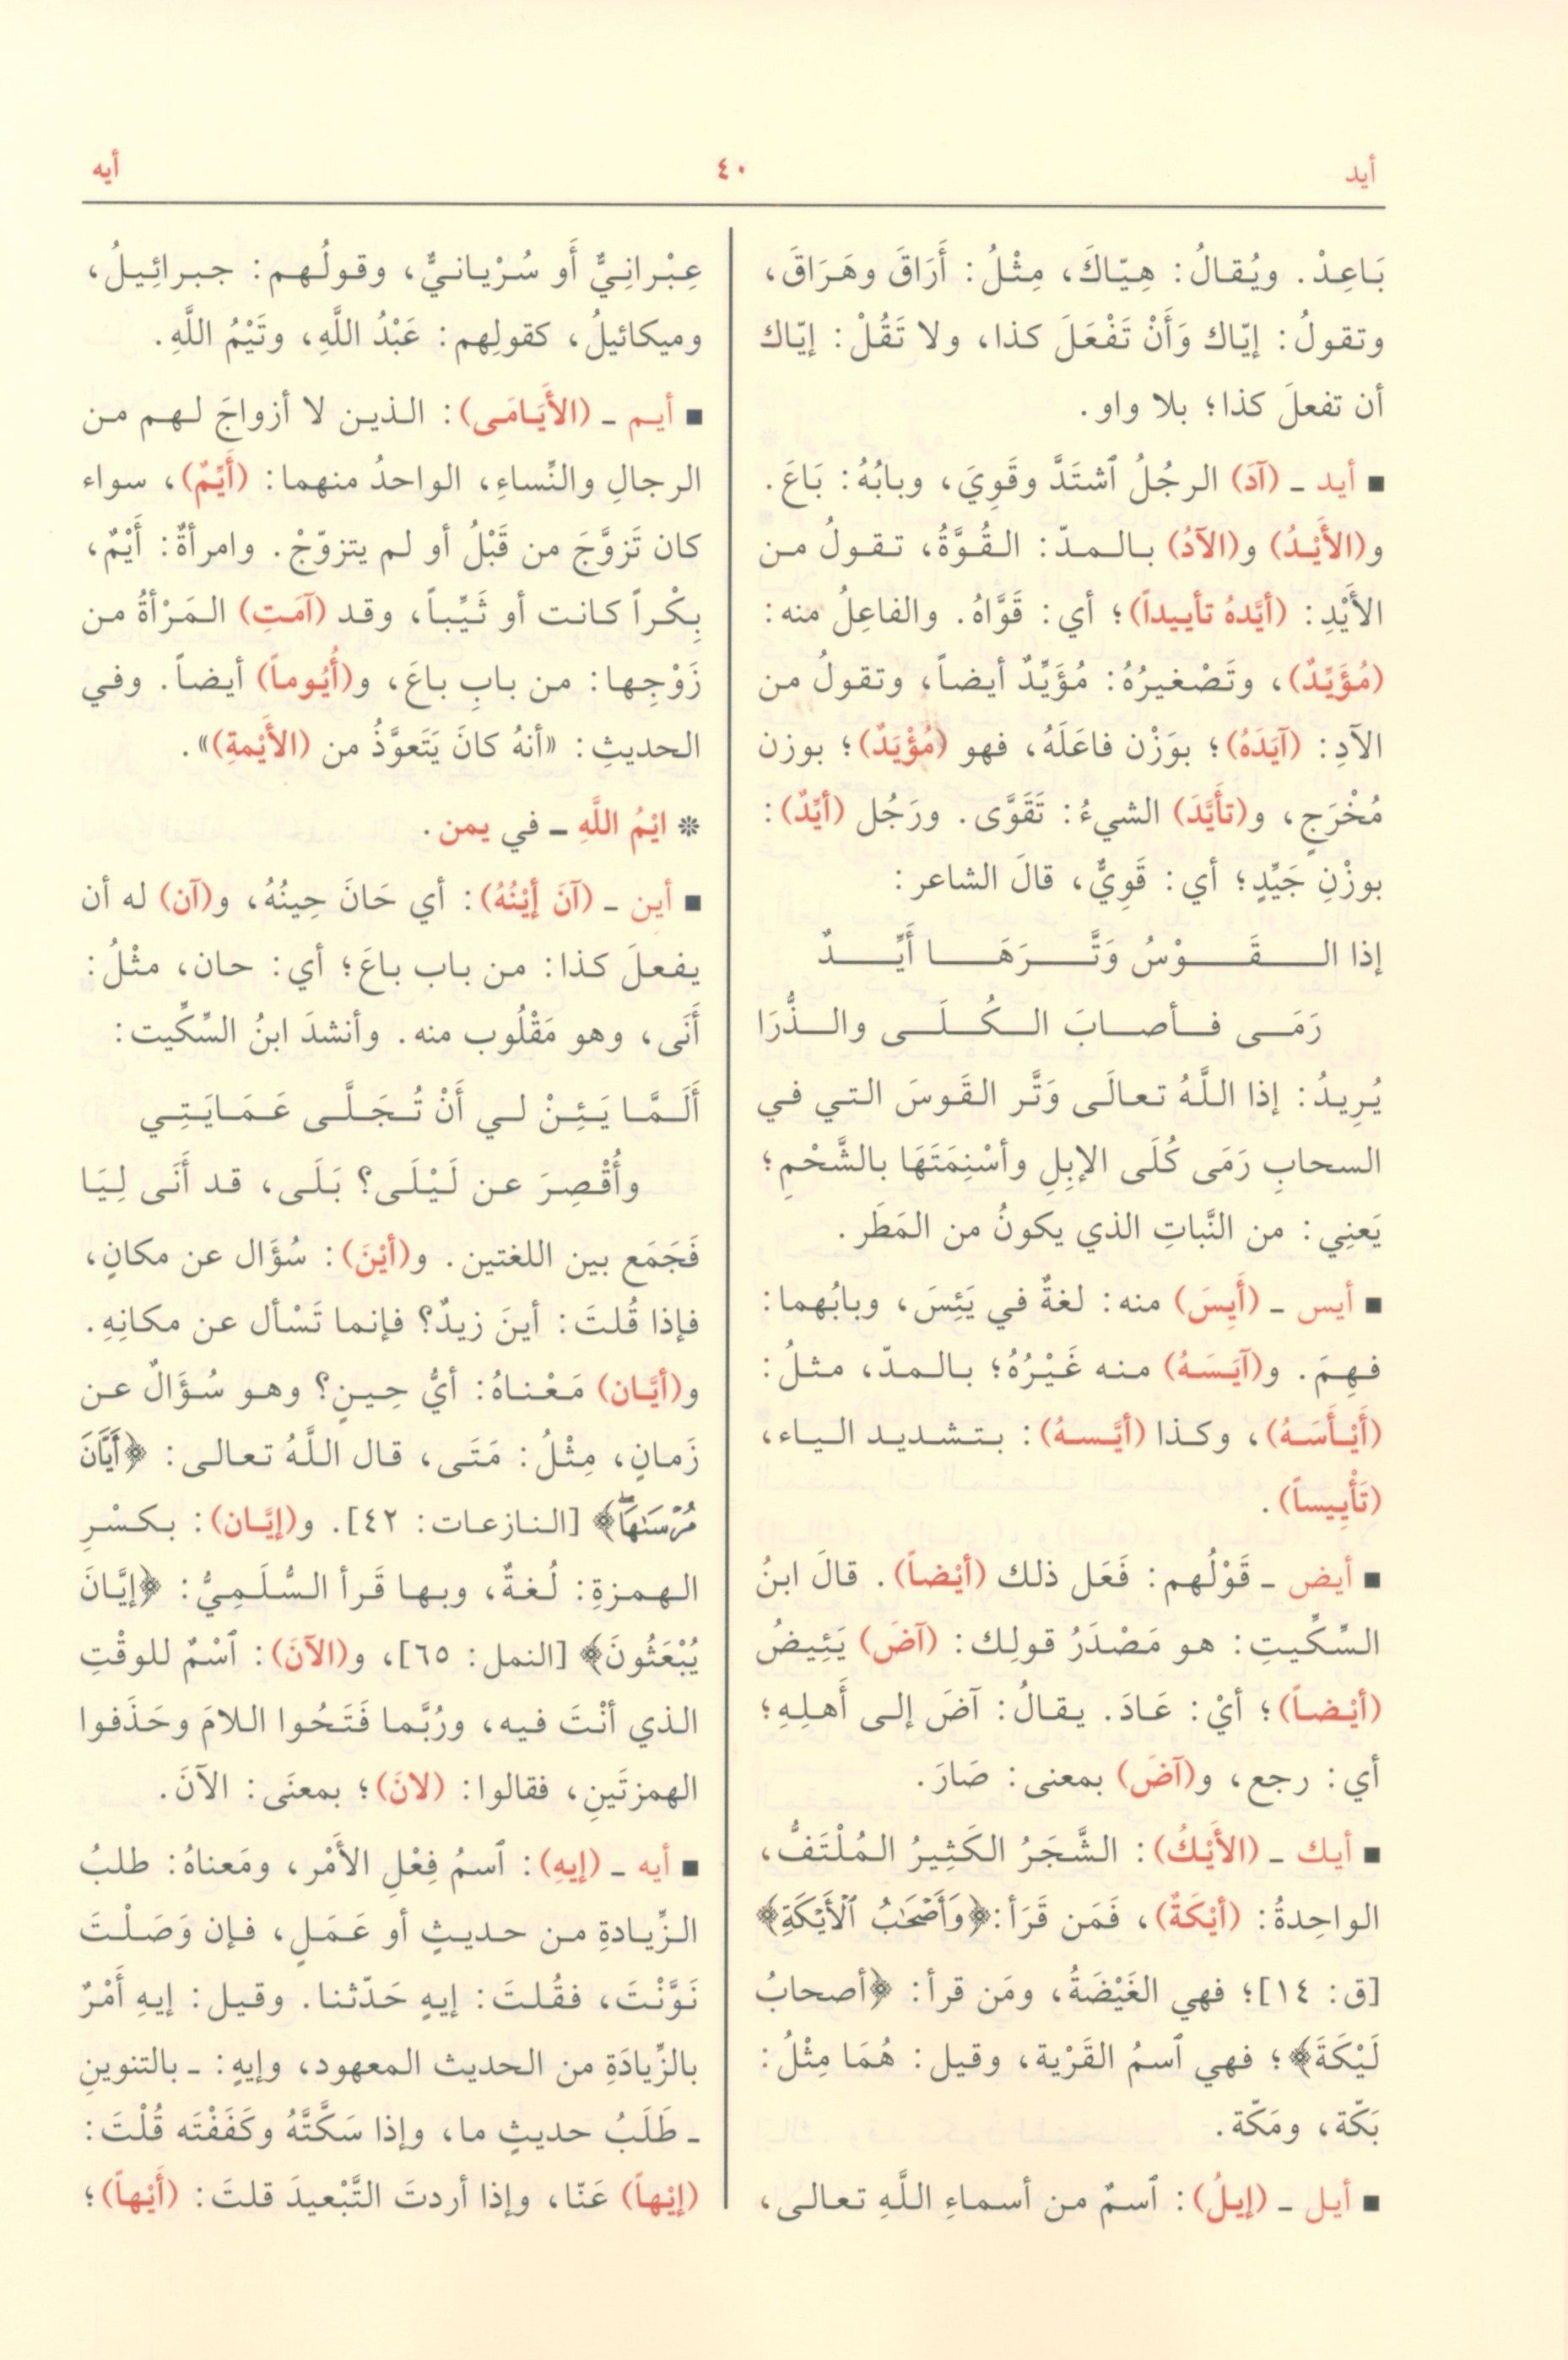 أيد ٤٠ أيه
بَاعِدْ. ويُقالُ: هِيّاكَ، مِثْلُ: أَرَاقَ وهَرَاقَ،
وتقولُ: إيّاك وَأَنْ تَفْعَلَ كذا، ولا تَقُلْ: إيّاك
أن تفعلَ كذا؛ بلا واو.
■ أيد ـ (آدَ) الرجُلُ ٱشتَدَّ وقَوِيَ، وبابُهُ: بَاعَ.
و(الأَيْدُ) و(الآدُ) بالمدّ: القُوَّةُ، تقولُ من
الأَيْدِ: (أيَّدهُ تأييداً)؛ أي: قَوَّاهُ. والفاعِلُ منه:
(مُؤَيِّدٌ)، وتَصْغيرُهُ: مُؤَيِّدٌ أيضاً، وتقولُ من
الآدِ: (آيَدَهُ)؛ بوَزْن فاعَلَهُ، فهو (مُؤْيَدٌ)؛ بوزن
مُخْرَجٍ، و(تأَيَّدَ) الشيءُ: تَقَوَّى. ورَجُل (أيِّدٌ):
بوزْنِ جَيِّدٍ؛ أي: قَوِيٌّ، قالَ الشاعر:
إذا القَوْسُ وَتَّرَهَا أَيِّدٌ
رَمَى فأصابَ الكُلَى والذُّرَا
يُرِيدُ: إذا اللَّهُ تعالَى وَتَّر القَوسَ التي في
السحابِ رَمَى كُلَى الإبِلِ وأسْنِمَتَهَا بالشَّحْمِ؛
يَعنِي: من النَّباتِ الذي يكونُ من المَطَر.
■ أيس ـ (أَيِسَ) منه: لغةٌ في يَئِسَ، وبابُهما:
فهِمَ. و(آيَسَهُ) منه غَيْرُهُ؛ بالمدّ، مثلُ:
(أَيْأَسَهُ)، وكذا (أيَّسهُ): بتشديد الياء،
(تَأْيِيساً).
■ أيض ـ قَوْلُهم: فَعَل ذلك (أيْضاً). قالَ ابنُ
السِّكِّيتِ: هو مَصْدَرُ قولِك: (آضَ) يَئِيضُ
(أيْضاً)؛ أيْ: عَادَ. يقالُ: آضَ إلى أَهلِهِ؛
أي: رجع، و(آضَ) بمعنى: صَارَ.
■ أيك ـ (الأَيْكُ): الشَّجَرُ الكَثِيرُ المُلْتَفُّ،
الواحِدةُ: (أيْكَةٌ)، فَمَن قَرَأ: ﴿وَأَصْحَٰبُ ٱلْأَيْكَةِ﴾
[ق: ١٤]؛ فهي الغَيْضَةُ، ومَن قرأ: ﴿أصحابُ
لَيْكَةَ﴾؛ فهي ٱسمُ القَرْية، وقيل: هُمَا مِثْلُ:
بَكّة، ومَكّة.
■ أيل ـ (إيلُ): ٱسمٌ من أسماءِ اللَّهِ تعالى،
عِبْرانِيٌّ أَو سُرْيانيٌّ، وقولُهم: جبرائِيلُ،
وميكائيلُ، كقولِهم: عَبْدُ اللَّهِ، وتَيْمُ اللَّهِ.
■ أيم ـ (الأَيَامَى): الذين لا أزواجَ لهم من
الرجالِ والنِّساءِ، الواحدُ منهما: (أَيِّمٌ)، سواء
كان تَزوَّجَ من قَبْلُ أو لم يتزوّجْ. وامرأةٌ: أَيْمٌ،
بِكْراً كانت أو ثَيِّباً، وقد (آمَتِ) المَرْأةُ من
زَوْجِها: من بابِ باعَ، و(أُيُوماً) أيضاً. وفي
الحديثِ: «أنهُ كانَ يَتَعوَّذُ من (الأَيْمةِ)».
❊ ايْمُ اللَّهِ ـ في يمن.
■ أين ـ (آنَ أيْنُهُ): أي حَانَ حِينُهُ، و(آن) له أن
يفعلَ كذا: من باب باعَ؛ أي: حان، مثْلُ:
أَنَى، وهو مَقْلُوب منه. وأنشدَ ابنُ السِّكِّيت:
أَلَمَّا يَئِنْ لي أَنْ تُجَلَّى عَمَايَتِي
وأُقْصِرَ عن لَيْلَى؟ بَلَى، قد أَنَى لِيَا
فَجَمَع بين اللغتين. و(أيْنَ): سُؤَال عن مكانٍ،
فإذا قُلتَ: أينَ زيدٌ؟ فإنما تَسْأل عن مكانِهِ.
و(أيَّان) مَعْناهُ: أيُّ حِينٍ؟ وهو سُؤَالٌ عن
زَمانٍ، مِثْلُ: مَتَى، قال اللَّهُ تعالى: ﴿أَيَّانَ
مُرْسَىٰهَا﴾ [النازعات: ٤٢]. و(إيَّان): بكسْرِ
الهمزةِ: لُغةٌ، وبها قَرأ السُّلَمِيُّ: ﴿إيَّانَ
يُبْعَثُونَ﴾ [النمل: ٦٥]، و(الآنَ): ٱسْمٌ للوقْتِ
الذي أنْتَ فيه، ورُبَّما فَتَحُوا اللامَ وحَذَفوا
الهمزتَينِ، فقالوا: (لانَ)؛ بمعنَى: الآنَ.
■ أيه ـ (إيهِ): ٱسمُ فِعْلِ الأَمْر، ومَعناهُ: طلبُ
الزِّيادةِ من حديثٍ أو عَمَلٍ، فإن وَصَلْتَ
نَوَّنْتَ، فقُلتَ: إيهٍ حَدّثنا. وقيل: إيهِ أَمْرٌ
بالزِّيادَةِ من الحديث المعهود، وإيهٍ: ـ بالتنوينِ
ـ طَلَبُ حديثٍ ما، وإذا سَكَّتَّهُ وكَفَفْتَه قُلْتَ:
(إيْهاً) عَنّا، وإذا أردتَ التَّبْعيدَ قلتَ: (أَيْهاً)؛